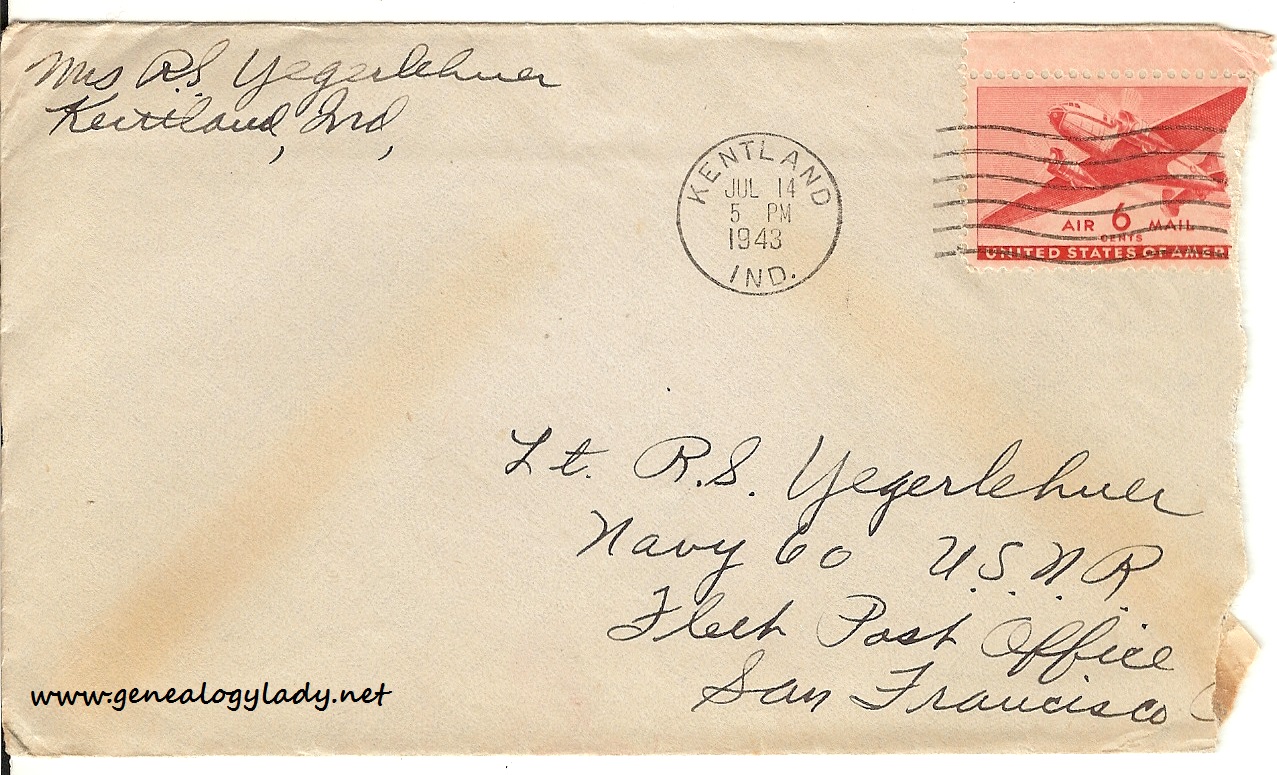 Mrs R.S. Yegerlehner
Kentland, Ind,
KENTLAND
JUL 14
5 PM
1943
IND.
AIR 6 MAIL
CENTS
UNITED STATES OF AMER
Lt. R.S. Yegerlehner
Navy 60 U.S.N.R.
Fleet Post Office
San Francisco C
www.genealogylady.net